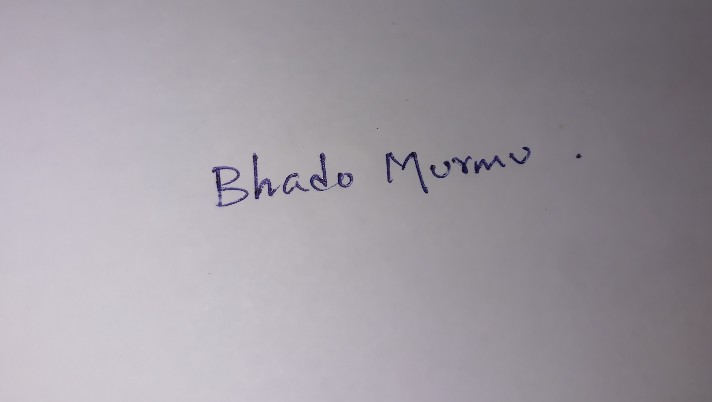 Bhado Murmu .